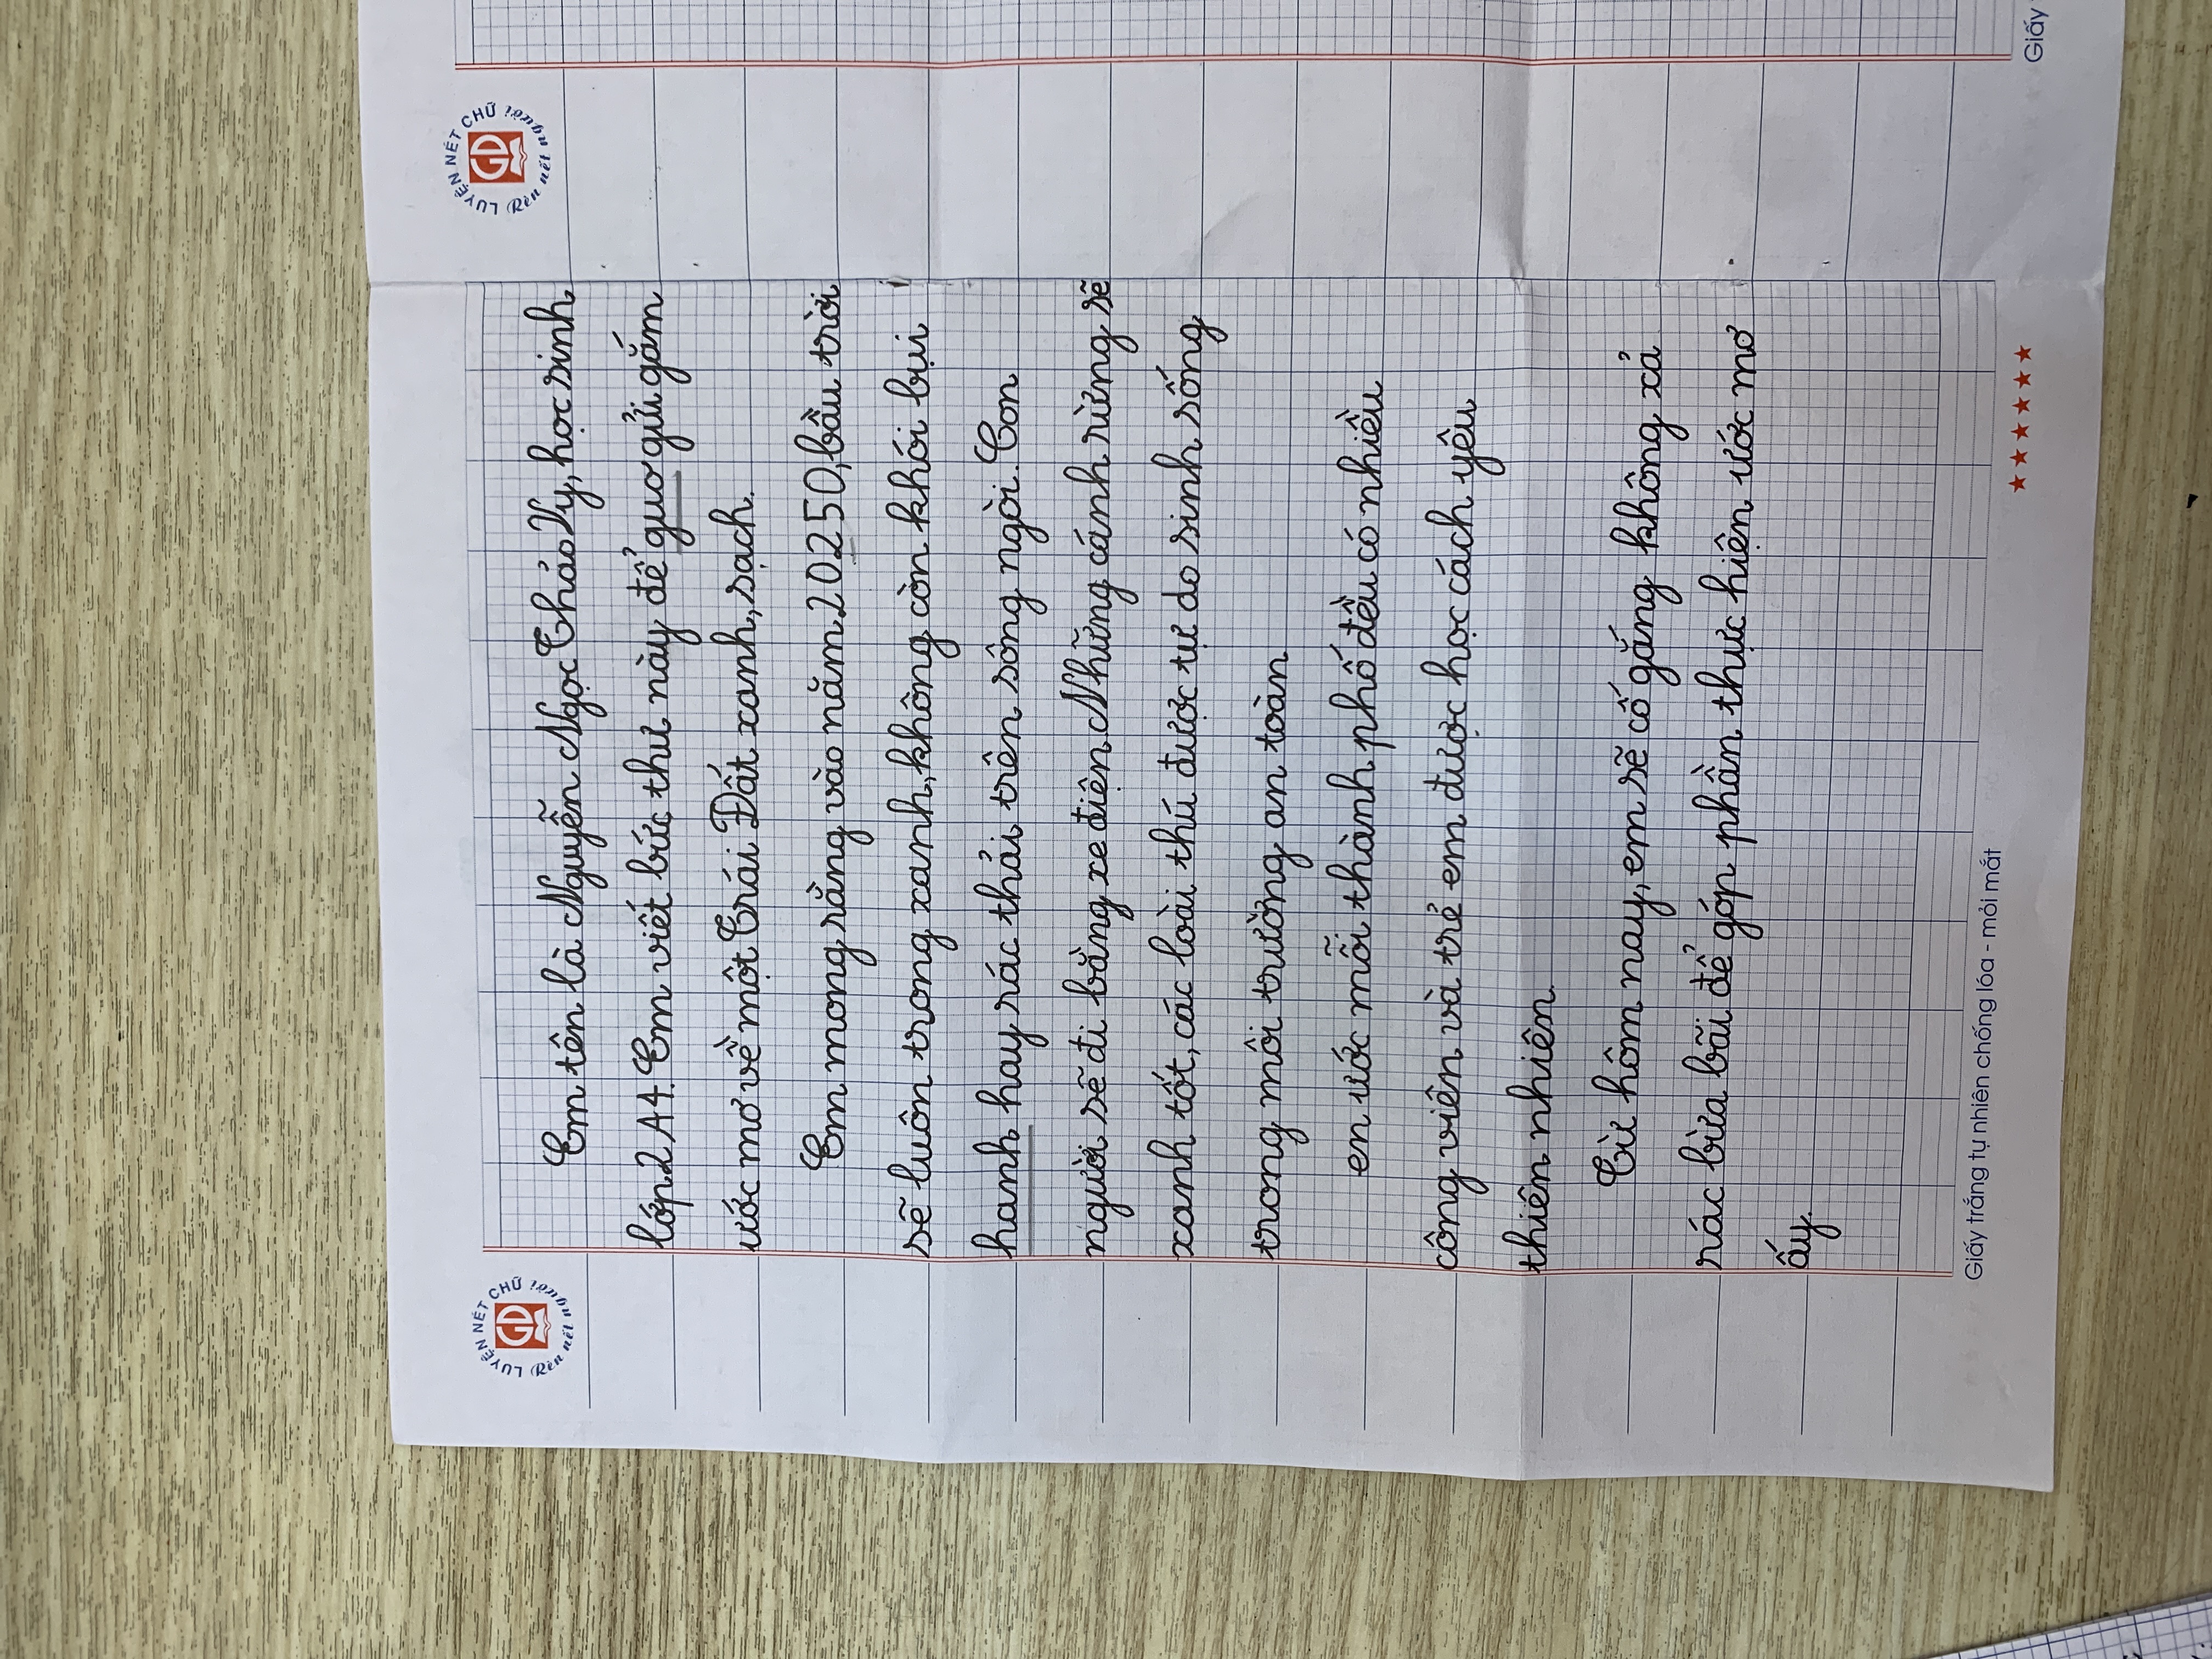 LUYỆN NÉT CHỮ
Rèn nết người
GD
Em tên là Nguyễn Ngọc Thảo Vy, học sinh
lớp 2A4. Em viết bức thư này để guơ gửi gắm
ước mơ về một Trái Đất xanh, sạch.
Em mong rằng vào năm 20250, bầu trời
sẽ luôn trong xanh, không còn khói bụi
hanh hay rác thải trên sông ngời. Con
người sẽ đi bằng xe điện Những cánh rừng sẽ
xanh tốt, các loài thú được tự do sinh sống
trong môi trường an toàn
en ước mỗi thành phố đều có nhiều
công viên và trẻ em được học cách yêu
thiên nhiên.
Từ hôm nay, em sẽ cố gắng không xả
rác bừa bãi để góp phần thực hiện ước mơ
ấy.
Giấy trắng tự nhiên chống lóa - mỏi mắt
LUYỆN NÉT CHỮ
Rèn nết người
GD
Giấy